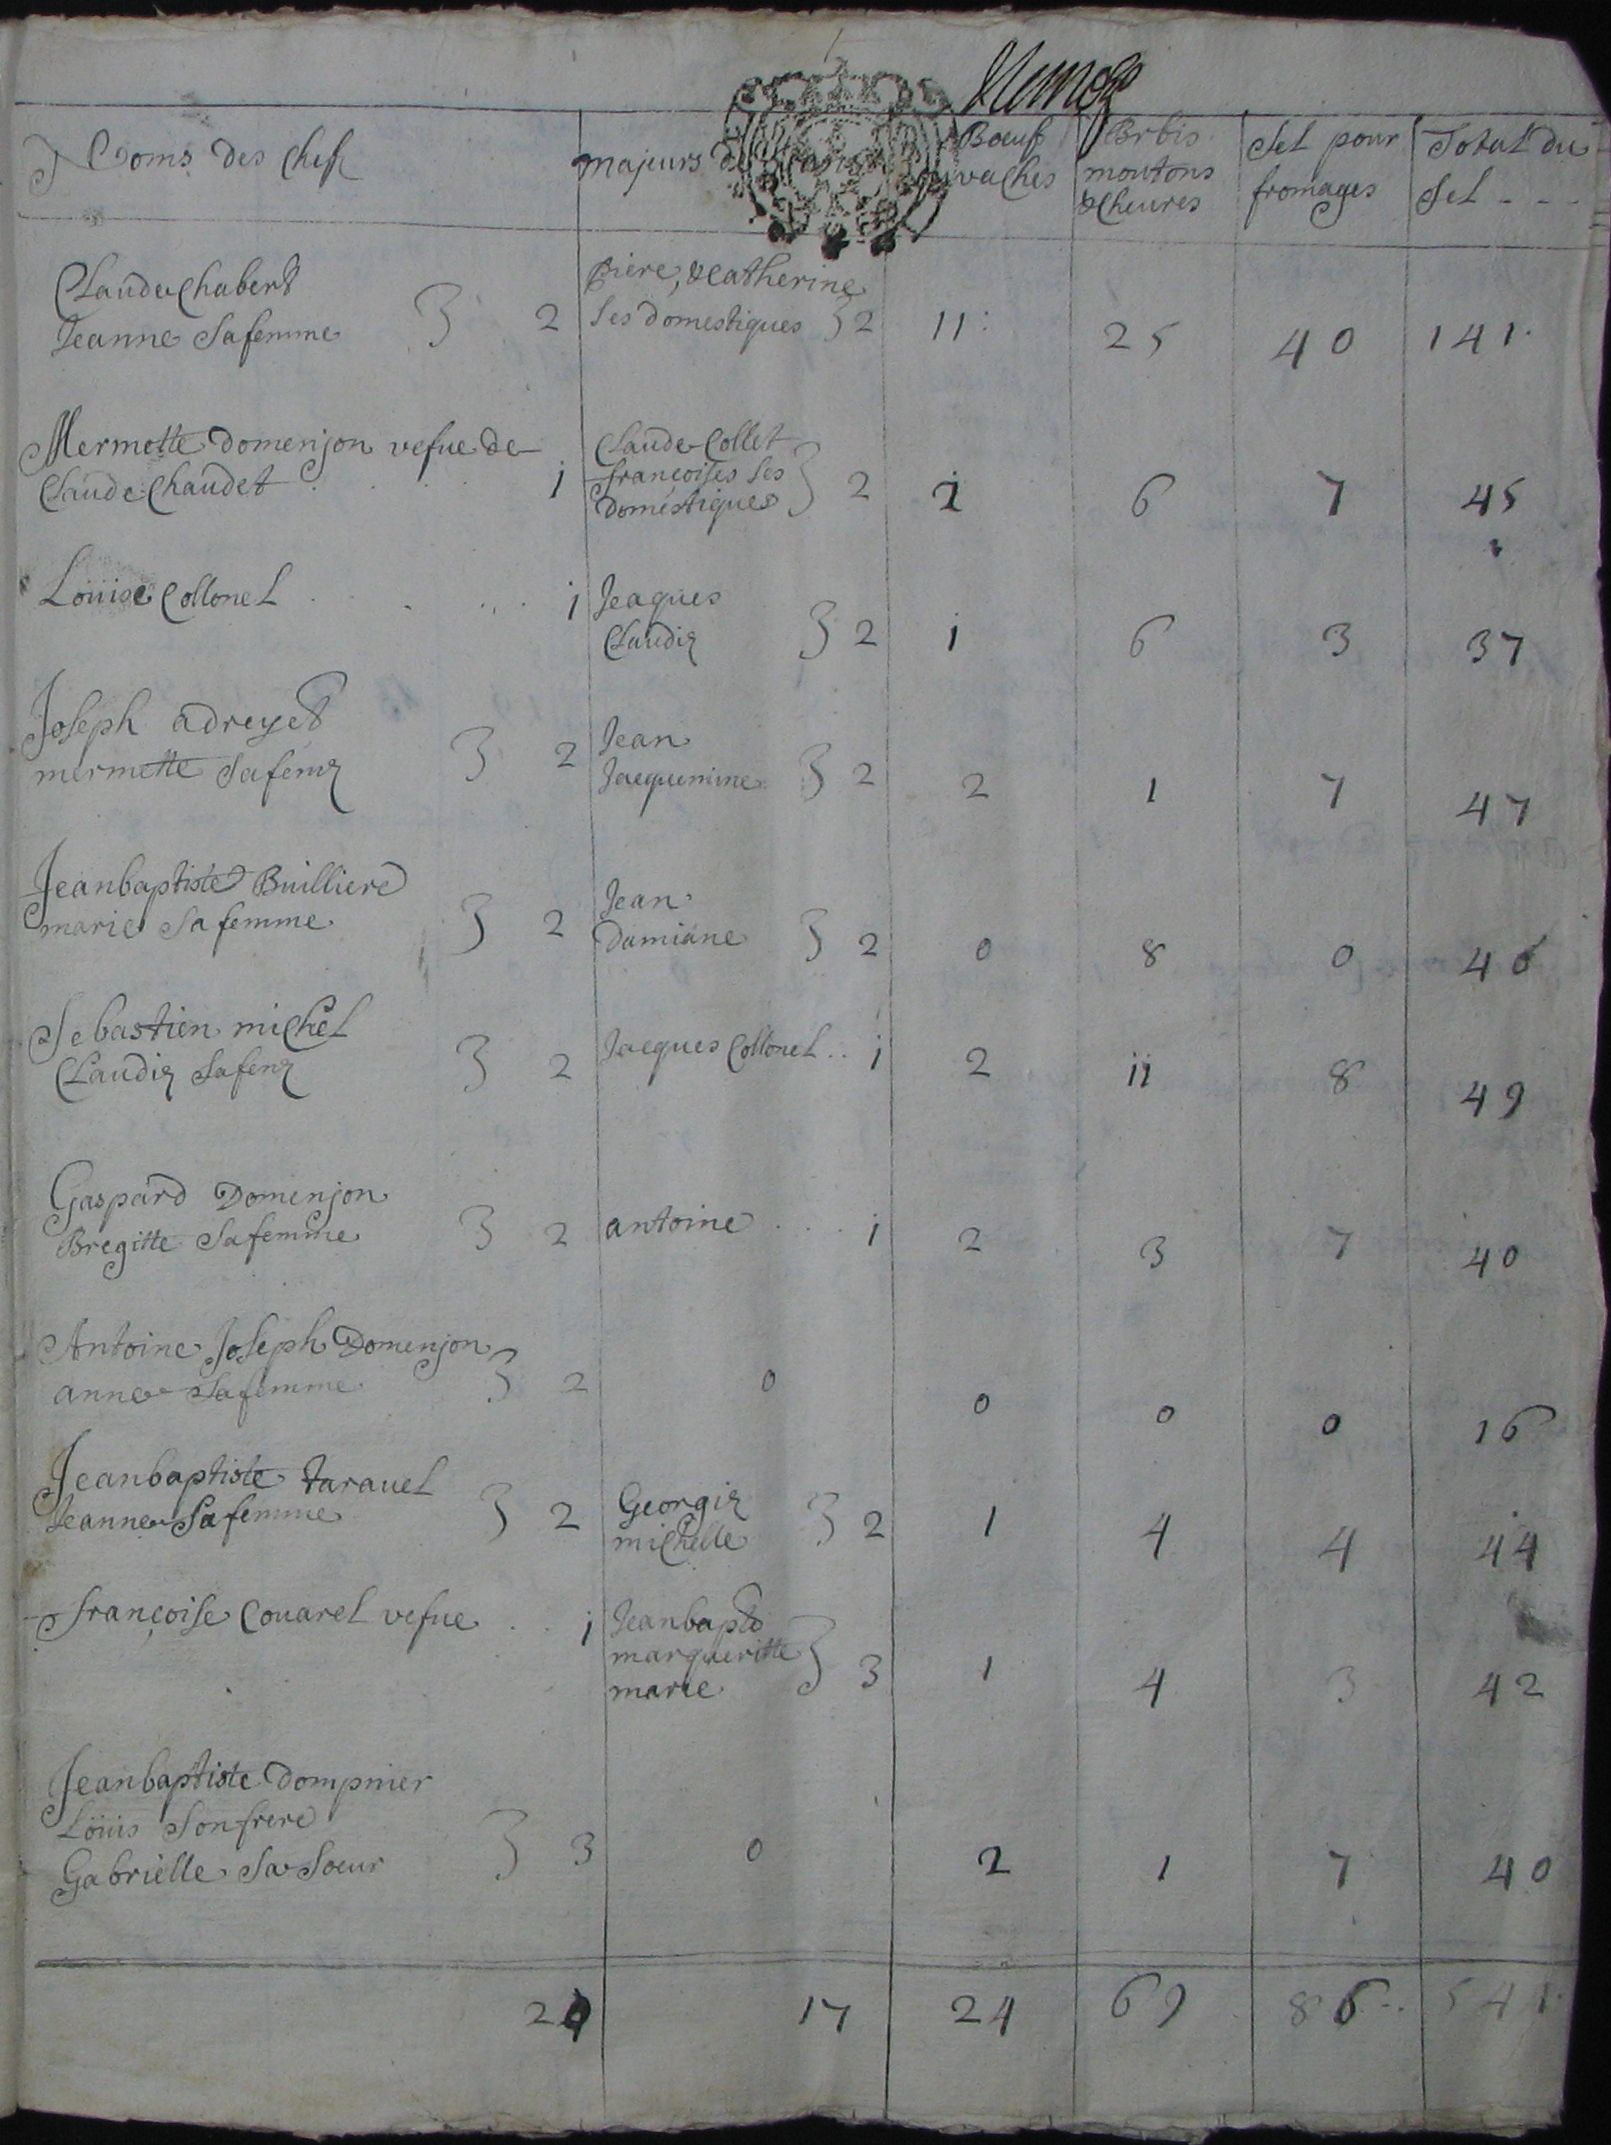 Noms des chefs
majeurs de
Bœufs vaches
Brbis moutons & Cheures
Sel pour fromages
Total du Sel - - -
Claude Chabert
Jeanne Sa femme 2
Piere, & Catherine
Ses domestiques 2 11 25 40 141
Mermette Domenjon vefue de
Claude Chaudet . . . 1
Claude Collet
francoises Ses
domestiques 2 2 6 7 45
Louise Collonel . . . . 1
Jeaques
Claudie 2 1 6 3 37
Joseph adreyet
mermette Sa feme 2
Jean
Jacquemine 2 2 1 7 47
Jeanbaptiste Buillierd
marie Sa femme 2
Jean
Damiane 2 0 8 0 40
Sebastien michel
Claudie Sa feme 2
Jacques Collonel .. i 2 ii 8 49
Gaspard Domenjon
Bregitte Sa femme 2
antoine . . . i 2 3 7 40
Antoine Joseph Domenjon
anne Sa femme 2 0 0 0 0 16
Jeanbaptiste taravel
Jeanne Sa femme 2
Georgie
michelle 2 1 4 4 44
françoise Couarel vefue . . i
Jeanbapt
margueritte
marie 3 1 4 3 42
Jeanbaptiste Dompnier
Loüis Son frere
Gabrielle Sa Soeur 3 0 2 1 7 40
17 24 69 86 541